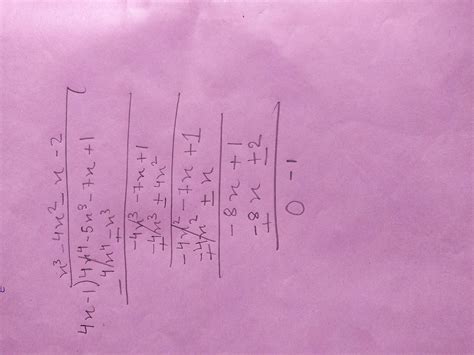 x³ - 4x² - x - 2
4x-1)4x⁴ - 5x³ - 7x + 1
4x⁴ ∓ x³
-
-4x³ - 7x + 1
-4x³ ± 4x²
+
-4x² - 7x + 1
-4x² ± x
+
-8x + 1
-8x ± 2
+
0 - 1